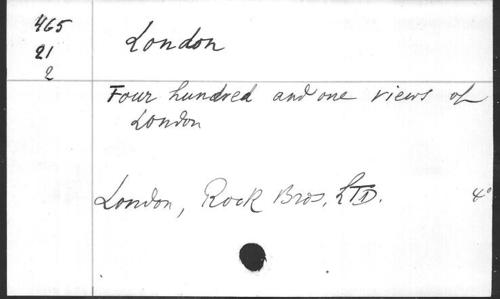 465
21
2
London
Four hundred and one views of
London
London, Rock Bros, LTD. 4°